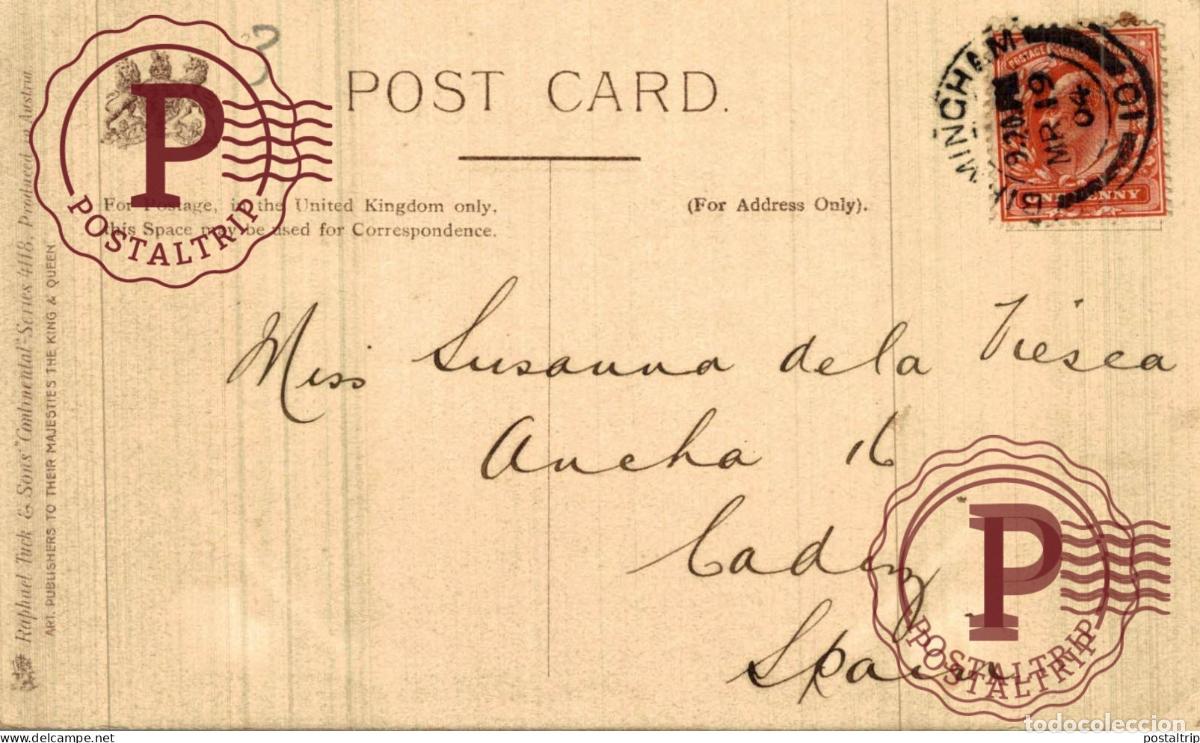 POST CARD.
For Postage, in the United Kingdom only,
this Space may be used for Correspondence.
(For Address Only).
Miss Susanna de la Viesca
Ancha 16
Cadiz
Spain
Raphael Tuck & Sons' "Continental" Series 4118. Produced in Austria.
ART. PUBLISHERS TO THEIR MAJESTIES THE KING & QUEEN
BIRMINGHAM
9.20
MR 19
04
101
POSTAGE
PENNY
P
POSTALTRIP
P
POSTALTRIP
POSTALTRIP
3
todocoleccion
www.todocoleccion.net
postaltrip